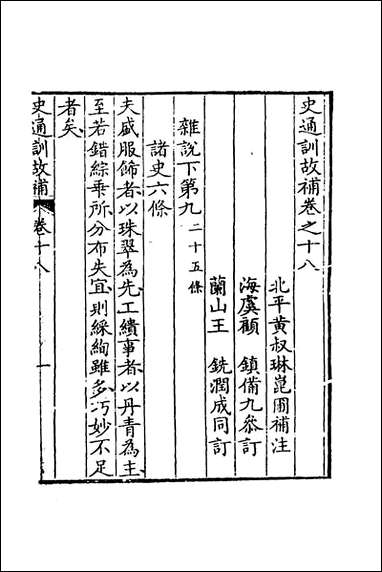 史通訓故補卷之十八
北平黃叔琳崑圃補注
海虞顧　鎮備九叅訂
蘭山王　銑潤成同訂
雜說下第九二十五條
諸史六條
夫盛服飾者以珠翠為先工繢事者以丹青為主
至若錯綜乖所分布失宜則綵絢雖多巧妙不足
者矣
史通訓故補　卷十八　一